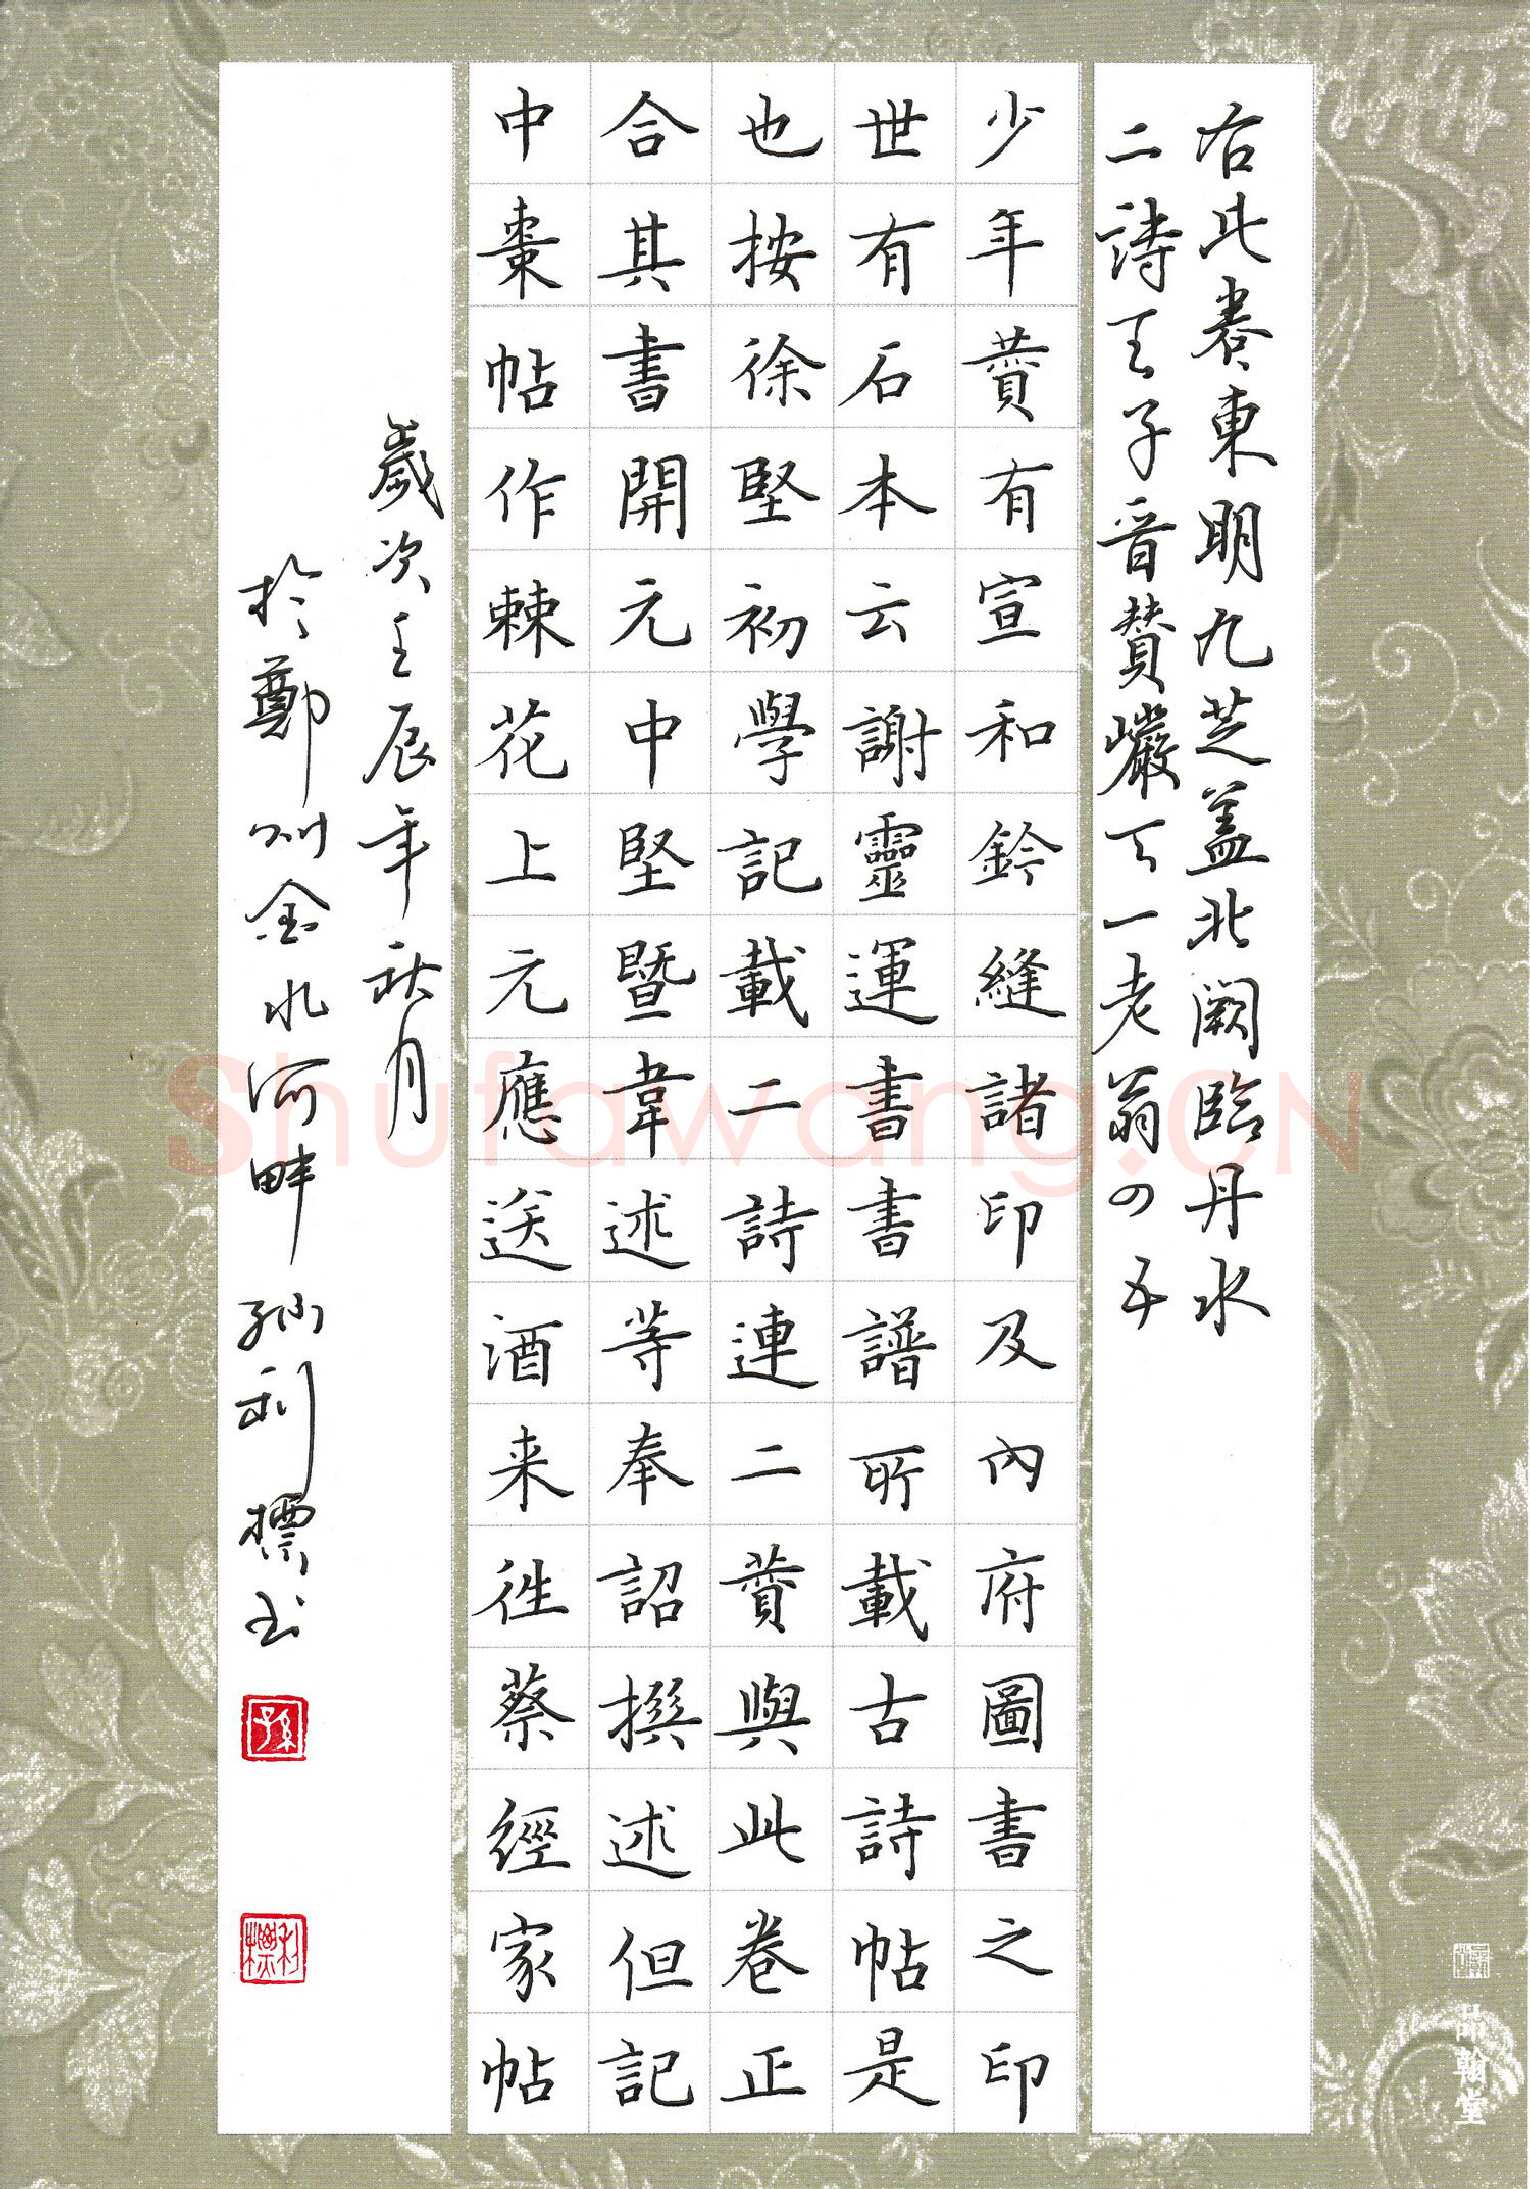 右此卷東明九芝蓋北闕臨丹水
二詩王子晉贊巖下一老翁四五
少年蕒有宣和鈐縫諸印及內府圖書之印
世有石本云謝靈運書書譜所載古詩帖是
也按徐堅初學記載二詩連二蕒與此卷正
合其書開元中堅暨韋述等奉詔撰述但記
中棗帖作棘花上元應送酒来往蔡經家帖
歲次壬辰年秋月
於鄭州金水河畔孫利標书
孫
利標
Shufawang.CN
翰堂